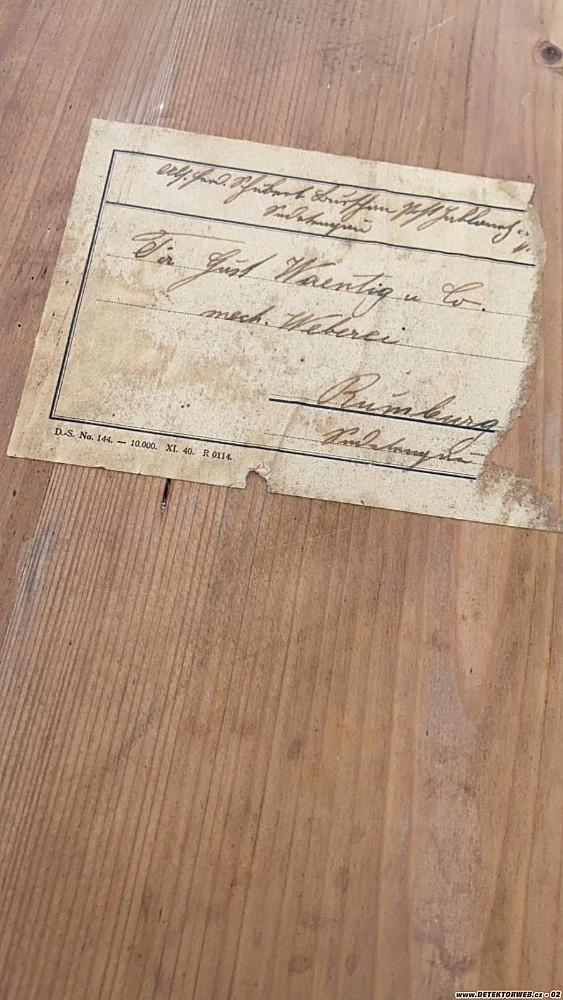 Schubert Post
Sudetengau
Fa Gust Waentig u Co.
mech. Weberei
Rumburg
Sudetengau
D.-S. No. 144. — 10.000. XI. 40. R 0114.
www.DETEKTORWEB.cz - 02